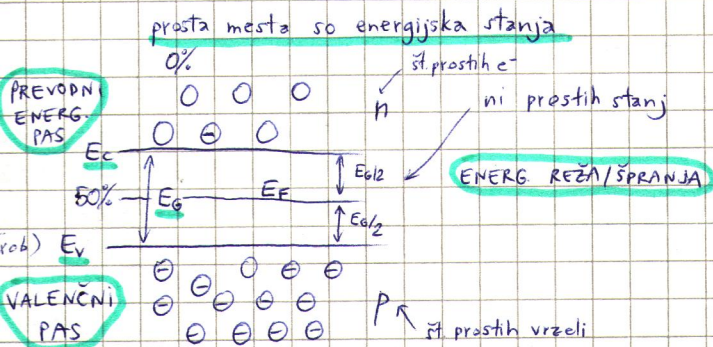 prosta mesta so energijska stanja
0%
št. prostih e-
PREVODNI
ENERG.
PAS
n
ni prostih stanj
Ec
EG/2
ENERG. REŽA/ŠPRANJA
50%
EG
EF
EG/2
rob) Ev
VALENČNI
PAS
p
št. prostih vrzeli